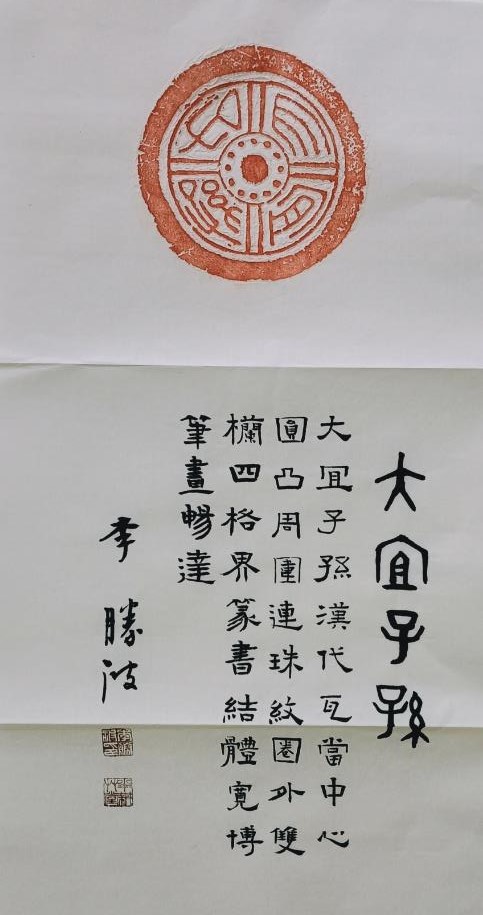 大宜子孫
大宜子孫漢代瓦當中心
圓凸周圍連珠紋圈外雙
欄四格界篆書結體寬博
筆畫暢達
李勝波